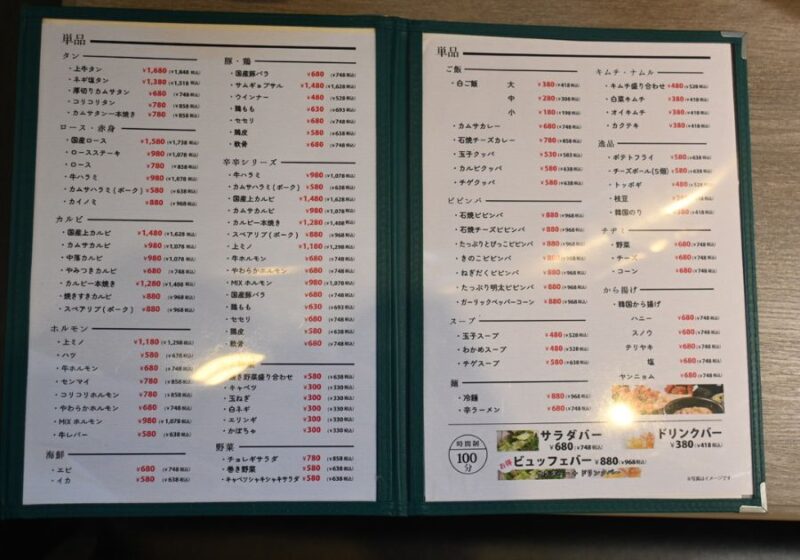 単品
タン
・上牛タン ¥1,680(¥1,848 税込)
・ネギ塩タン ¥1,380(¥1,518 税込)
・厚切りカムサタン ¥680(¥748 税込)
・コリコリタン ¥780(¥858 税込)
・カムサタン一本焼き ¥780(¥858 税込)
ロース・赤身
・国産ロース ¥1,580(¥1,738 税込)
・ロースステーキ ¥980(¥1,078 税込)
・ロース ¥780(¥858 税込)
・牛ハラミ ¥980(¥1,078 税込)
・カムサハラミ(ポーク) ¥580(¥638 税込)
・カイノミ ¥880(¥968 税込)
カルビ
・国産上カルビ ¥1,480(¥1,628 税込)
・カムサカルビ ¥980(¥1,078 税込)
・中落カルビ ¥980(¥1,078 税込)
・やみつきカルビ ¥680(¥748 税込)
・カルビ一本焼き ¥1,280(¥1,408 税込)
・焼きすきカルビ ¥880(¥968 税込)
・スペアリブ(ポーク) ¥880(¥968 税込)
ホルモン
・上ミノ ¥1,180(¥1,298 税込)
・ハツ ¥580(¥638 税込)
・牛ホルモン ¥680(¥748 税込)
・センマイ ¥780(¥858 税込)
・コリコリホルモン ¥780(¥858 税込)
・やわらかホルモン ¥680(¥748 税込)
・MIX ホルモン ¥980(¥1,078 税込)
・牛レバー ¥580(¥638 税込)
海鮮
・エビ ¥680(¥748 税込)
・イカ ¥580(¥638 税込)
豚・鶏
・国産豚バラ ¥680(¥748 税込)
・サムギョプサル ¥1,480(¥1,628 税込)
・ウインナー ¥480(¥528 税込)
・鶏もも ¥630(¥693 税込)
・セセリ ¥680(¥748 税込)
・鶏皮 ¥580(¥638 税込)
・軟骨 ¥680(¥748 税込)
辛辛シリーズ
・牛ハラミ ¥980(¥1,078 税込)
・カムサハラミ(ポーク) ¥580(¥638 税込)
・国産上カルビ ¥1,480(¥1,628 税込)
・カムサカルビ ¥980(¥1,078 税込)
・カルビ一本焼き ¥1,280(¥1,408 税込)
・スペアリブ(ポーク) ¥880(¥968 税込)
・上ミノ ¥1,180(¥1,298 税込)
・牛ホルモン ¥680(¥748 税込)
・やわらかホルモン ¥680(¥748 税込)
・MIX ホルモン ¥980(¥1,078 税込)
・国産豚バラ ¥680(¥748 税込)
・鶏もも ¥630(¥693 税込)
・セセリ ¥680(¥748 税込)
・鶏皮 ¥580(¥638 税込)
・軟骨 ¥680(¥748 税込)
き野菜盛り合わせ ¥580(¥638 税込)
・キャベツ ¥300(¥330 税込)
・玉ねぎ ¥300(¥330 税込)
・白ネギ ¥300(¥330 税込)
・エリンギ ¥300(¥330 税込)
・かぼちゃ ¥300(¥330 税込)
野菜
・チョレギサラダ ¥780(¥858 税込)
・巻き野菜 ¥580(¥638 税込)
・キャベツシャキシャキサラダ ¥580(¥638 税込)
単品
ご飯
・白ご飯 大 ¥380(¥418 税込)
中 ¥280(¥308 税込)
小 ¥180(¥198 税込)
・カムサカレー ¥680(¥748 税込)
・石焼チーズカレー ¥780(¥858 税込)
・玉子クッパ ¥530(¥583 税込)
・カルビクッパ ¥580(¥638 税込)
・チゲクッパ ¥580(¥638 税込)
ビビンバ
・石焼ビビンバ ¥880(¥968 税込)
・石焼チーズビビンバ ¥880(¥968 税込)
・たっぷりとびっこビビンバ ¥880(¥968 税込)
・きのこビビンバ ¥880(¥968 税込)
・ねぎだくビビンバ ¥880(¥968 税込)
・たっぷり明太ビビンバ ¥880(¥968 税込)
・ガーリックペッパーコーン ¥880(¥968 税込)
スープ
・玉子スープ ¥480(¥528 税込)
・わかめスープ ¥480(¥528 税込)
・チゲスープ ¥580(¥638 税込)
麺
・冷麺 ¥880(¥968 税込)
・辛ラーメン ¥680(¥748 税込)
キムチ・ナムル
・キムチ盛り合わせ ¥480(¥528 税込)
・白菜キムチ ¥380(¥418 税込)
・オイキムチ ¥380(¥418 税込)
・カクテキ ¥380(¥418 税込)
逸品
・ポテトフライ ¥580(¥638 税込)
・チーズボール(5個) ¥580(¥638 税込)
・トッポギ ¥480(¥528 税込)
・枝豆
・韓国のり ¥380(¥418 税込)
チヂミ
・野菜 ¥680(¥748 税込)
・チーズ ¥680(¥748 税込)
・コーン ¥680(¥748 税込)
から揚げ
・韓国から揚げ
ハニー ¥680(¥748 税込)
スノウ ¥680(¥748 税込)
テリヤキ ¥680(¥748 税込)
塩 ¥680(¥748 税込)
ヤンニョム ¥680(¥748 税込)
時間制
100分
サラダバー
¥680(¥748 税込)
ドリンクバー
¥380(¥418 税込)
お得 ビュッフェバー ¥880(¥968 税込)
サラダバー + ドリンクバー
※写真はイメージです